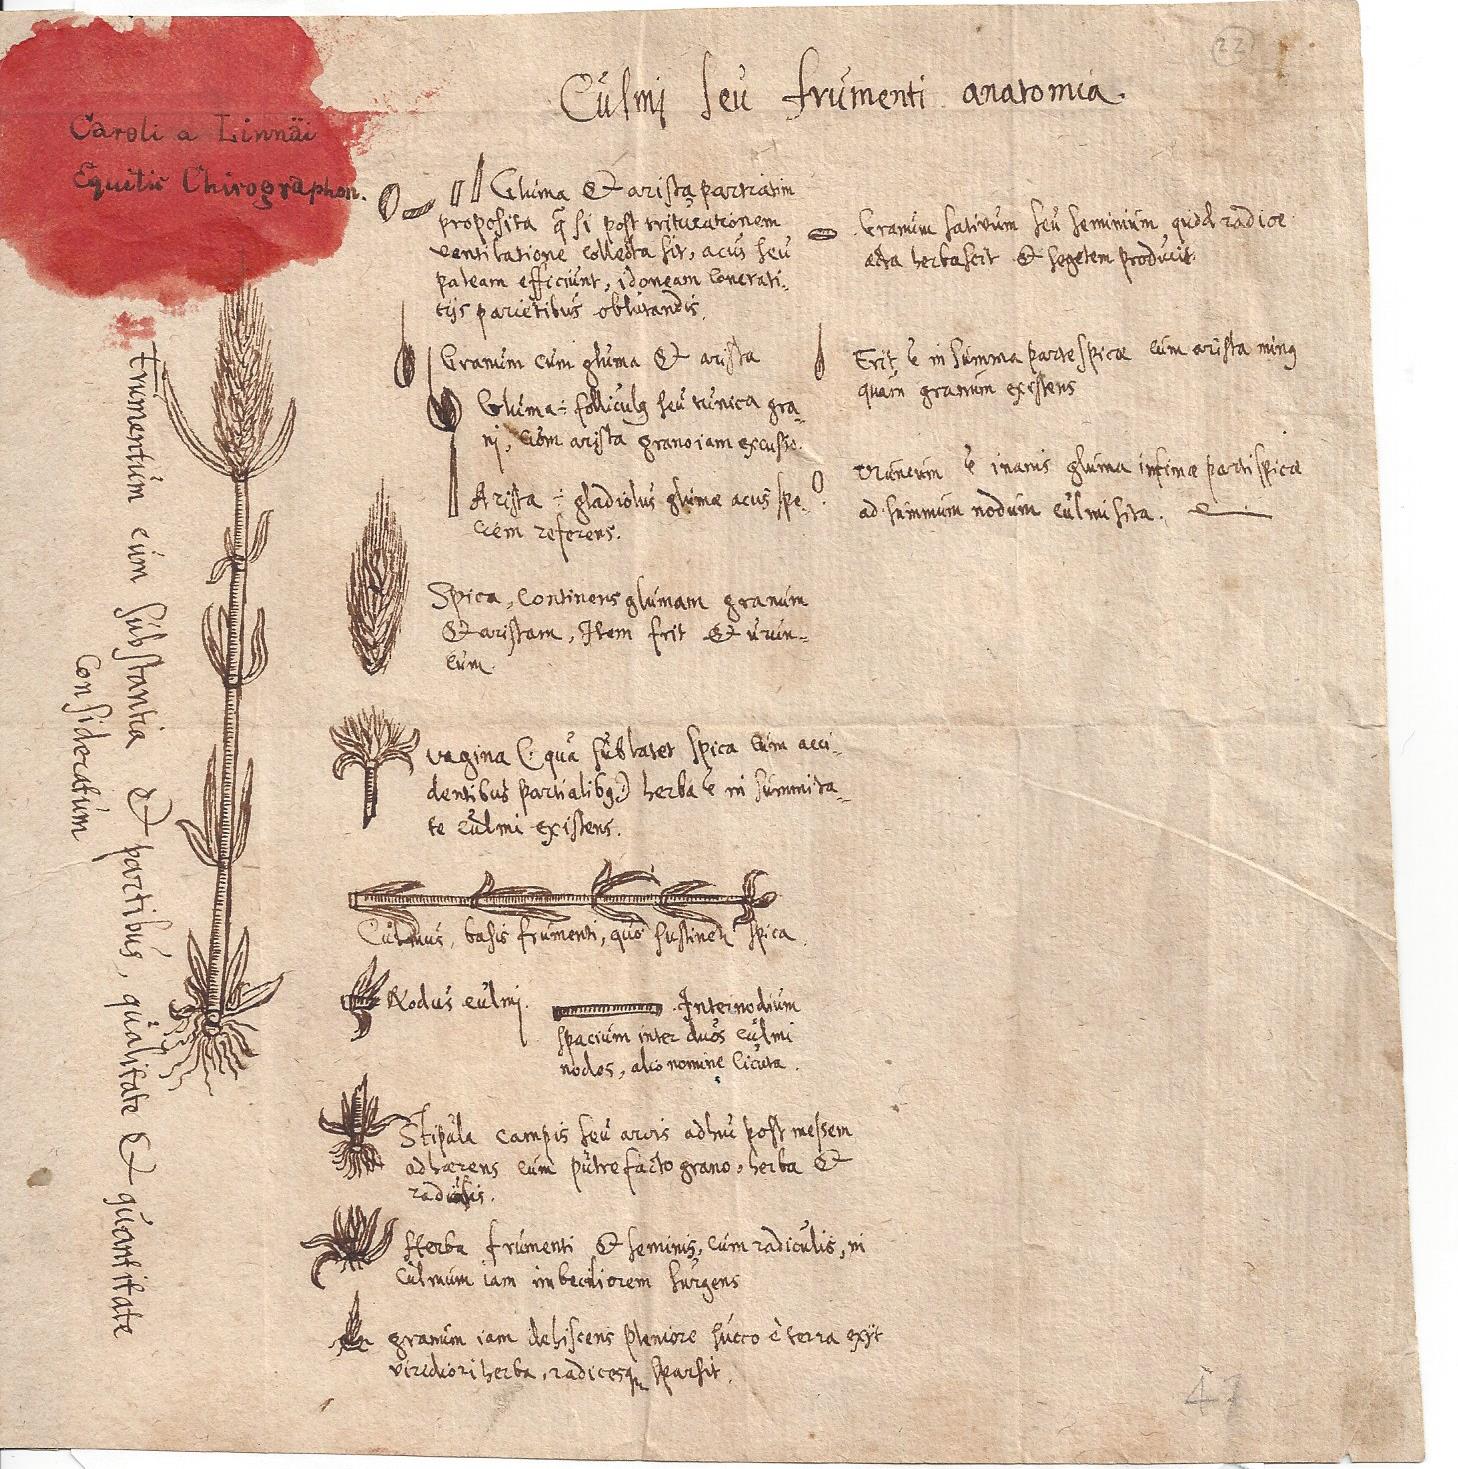 22
Culmi seu frumenti anatomia.
Caroli a Linnäi
Equitis Chirographon.
Gluma & arista partiatim
proposita q̃ si post triturationem
ventilatione collecta sit, acus seu
paleam efficiunt, idoneam
tijs parietibus oblutandis.
Granum cum gluma & arista
Gluma ÷ folliculq seu tunica gra-
ni, cum arista grano iam excusso.
Arista ÷ gladiolus glumæ acus spe-
ciem referens.
Spica, continens glumam granum
& aristam, Item frit & urun-
cum.
vagina (qua sublatet spica cum acci-
dentibus partialibq) herba ẽ in summita-
te culmi existens.
Culmus, basis frumenti, quo sustinet spica.
Nodus culmi.
Internodium
spacium inter duos culmi
nodos, alio nomine Cicuta.
Stipula campis seu arvis adhuc post messem
adhærens cum putrefacto grano, herba &
Herba frumenti & seminis, cum radiculis, in
culmum iam imbecilliorem surgens
granum iam dehiscens pleniore succo è terra exijt
viridiori herba, radicesq sparsit.
Granum sativum seu seminium, quod radice
acta herbascit & segetem producit.
Frit ẽ in summa parte spicæ cum arista minq
quam granum existens
Uruncum ẽ inanis gluma infimæ parti spicæ
ad summum nodum culmi sita.
Frumentum cum substantia & partibus, qualitate & quantitate
Consideratum
47